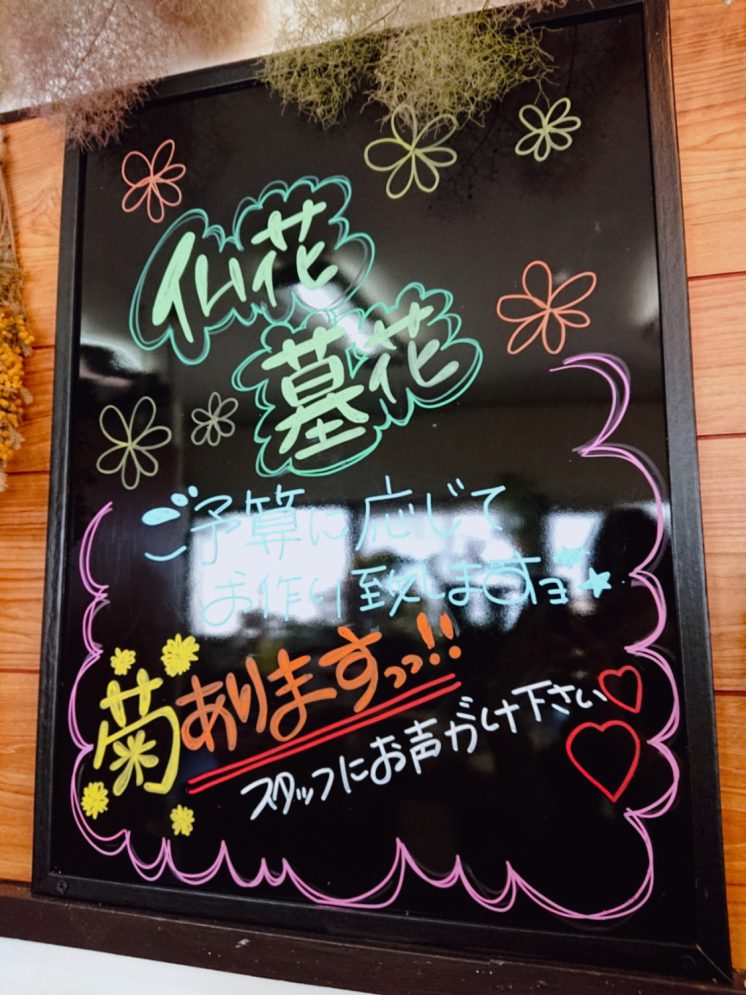 仏花
墓花
ご予算に応じて
お作り致しますョ
菊ありますっっ!!
スタッフにお声がけ下さい